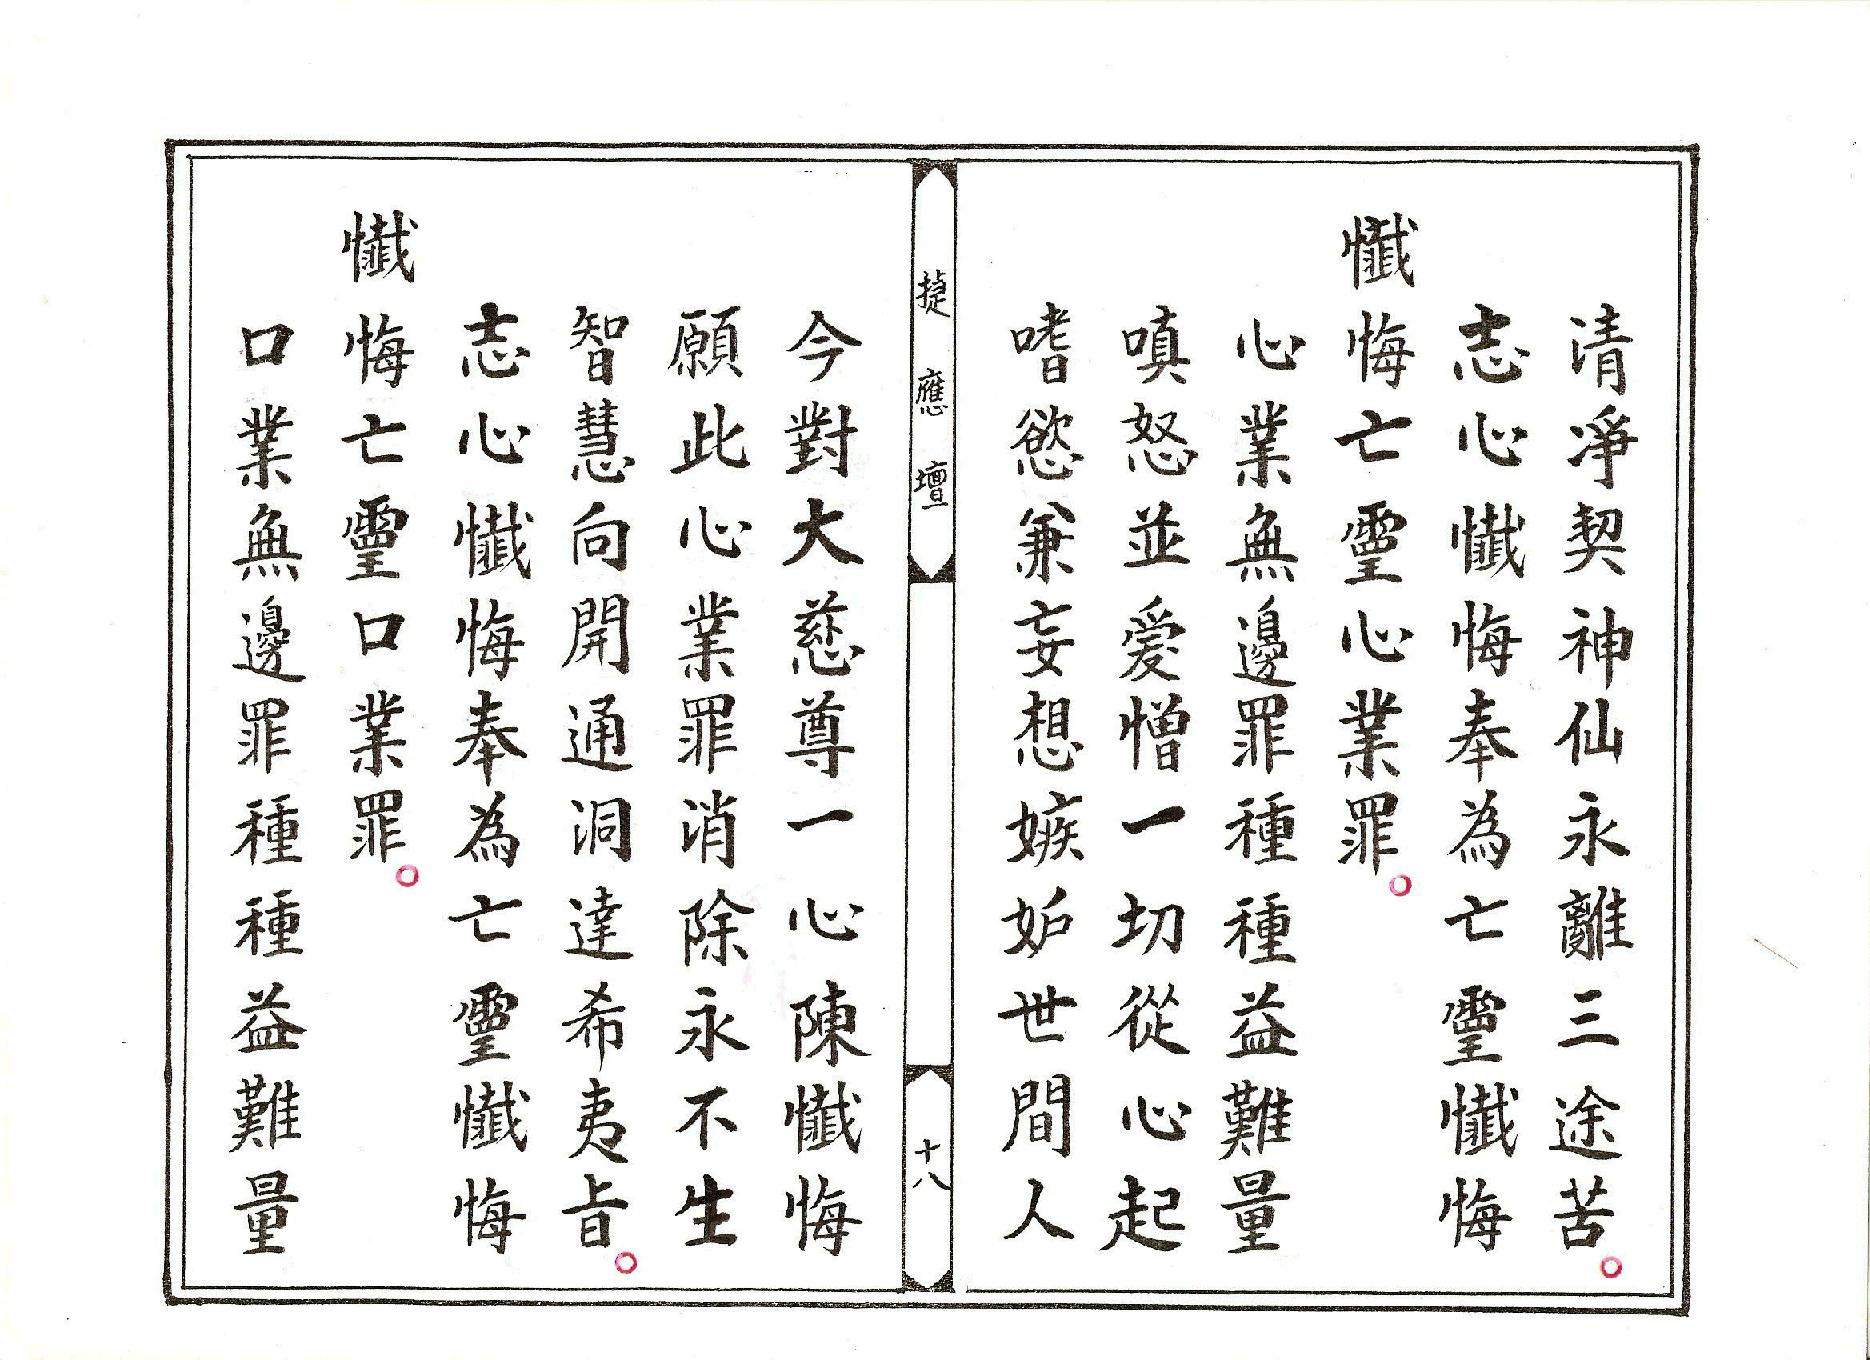 清淨契神仙永離三途苦。
志心懺悔奉為亡靈懺悔
懺悔亡靈心業罪。
心業無邊罪種種益難量
嗔怒並爱憎一切從心起
嗜慾兼妄想嫉妒世間人
捷應壇
十八
今對大慈尊一心陳懺悔
願此心業罪消除永不生
智慧向開通洞達希夷旨。
志心懺悔奉為亡靈懺悔
懺悔亡靈口業罪。
口業無邊罪種種益難量